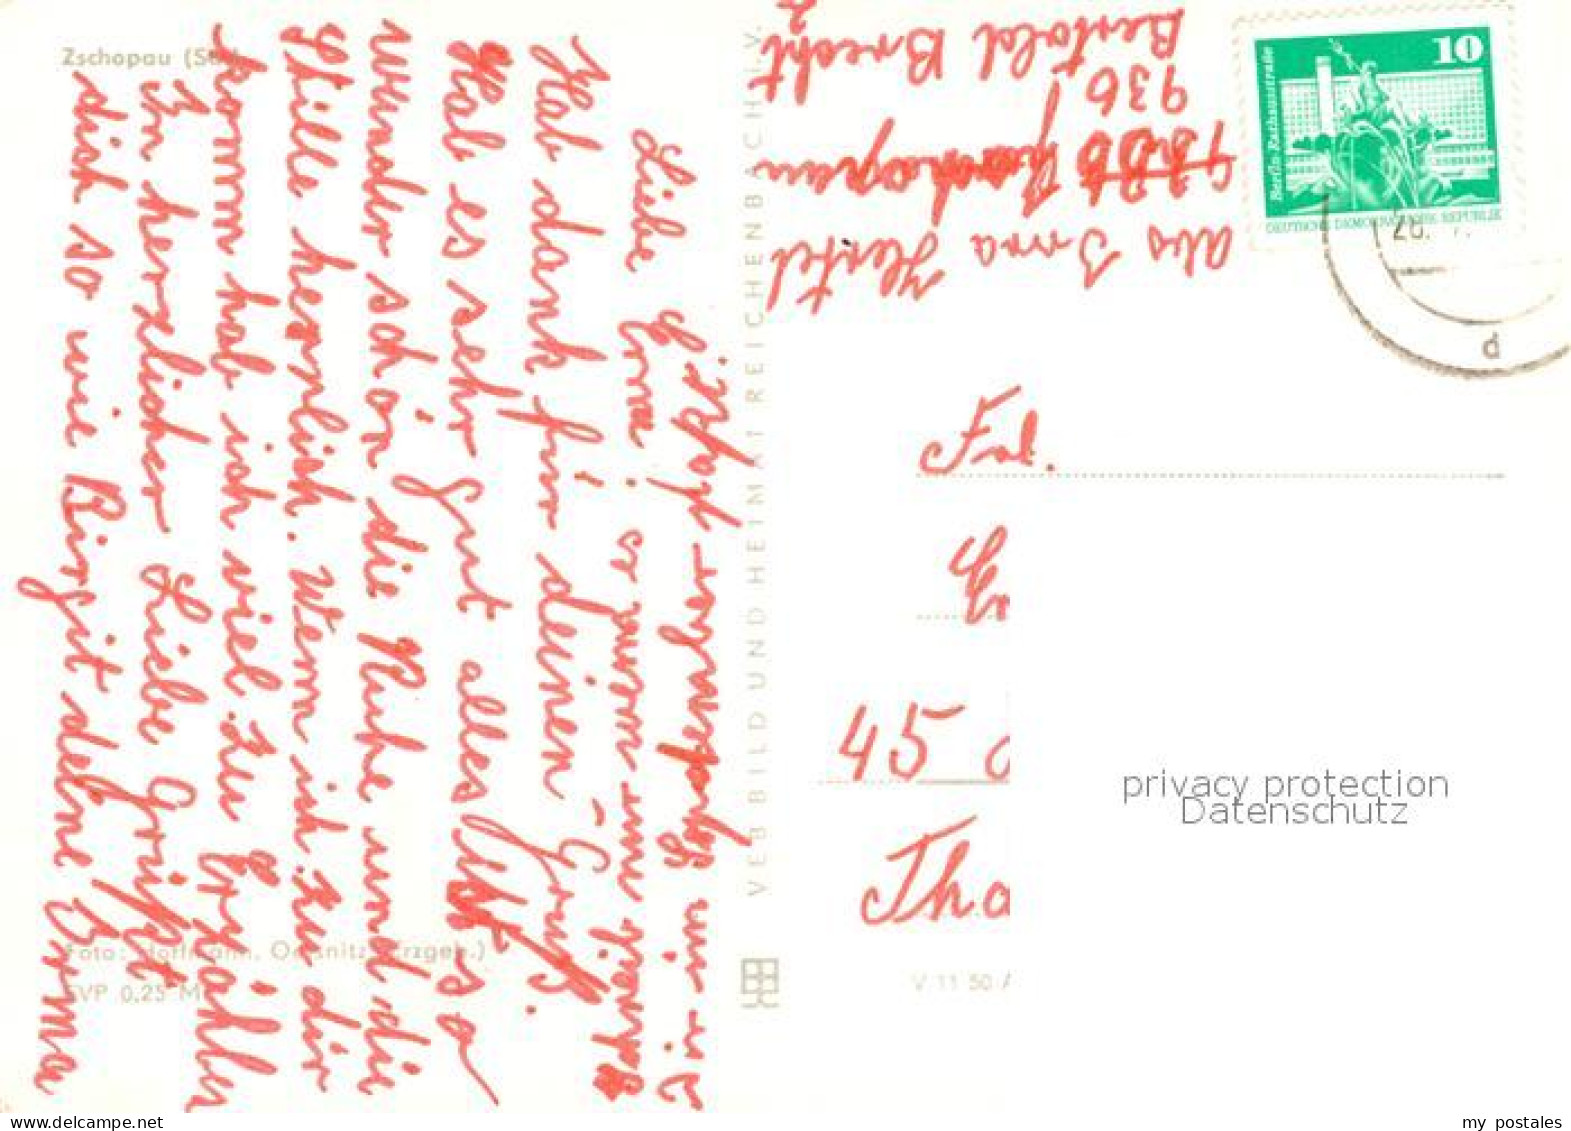 Zschopau
Liebe Erna!
Hab dank für deinen Gruß.
Hab es sehr gut alles ist so
wunder schön die Ruhe und die
Stille herrlich. Wenn ich zu dir
komm hab ich viel zu Erzähler
In herzlicher Liebe Grüßt
dich so wie Birgit deine Irma
Foto: Hoffmann, Oelsnitz (Erzgeb.)
EVP 0,25 M
VEB BILD UND HEIMAT REICHENBACH I. V.
V 11 50 A
abs Irma Hertel
Zschopau
936
Bertold Brecht
10
Berlin-Rathausstraße
DEUTSCHE DEMOKRATISCHE REPUBLIK
28.
d
45
Tha
privacy protection
Datenschutz
www.delcampe.net
my_postales